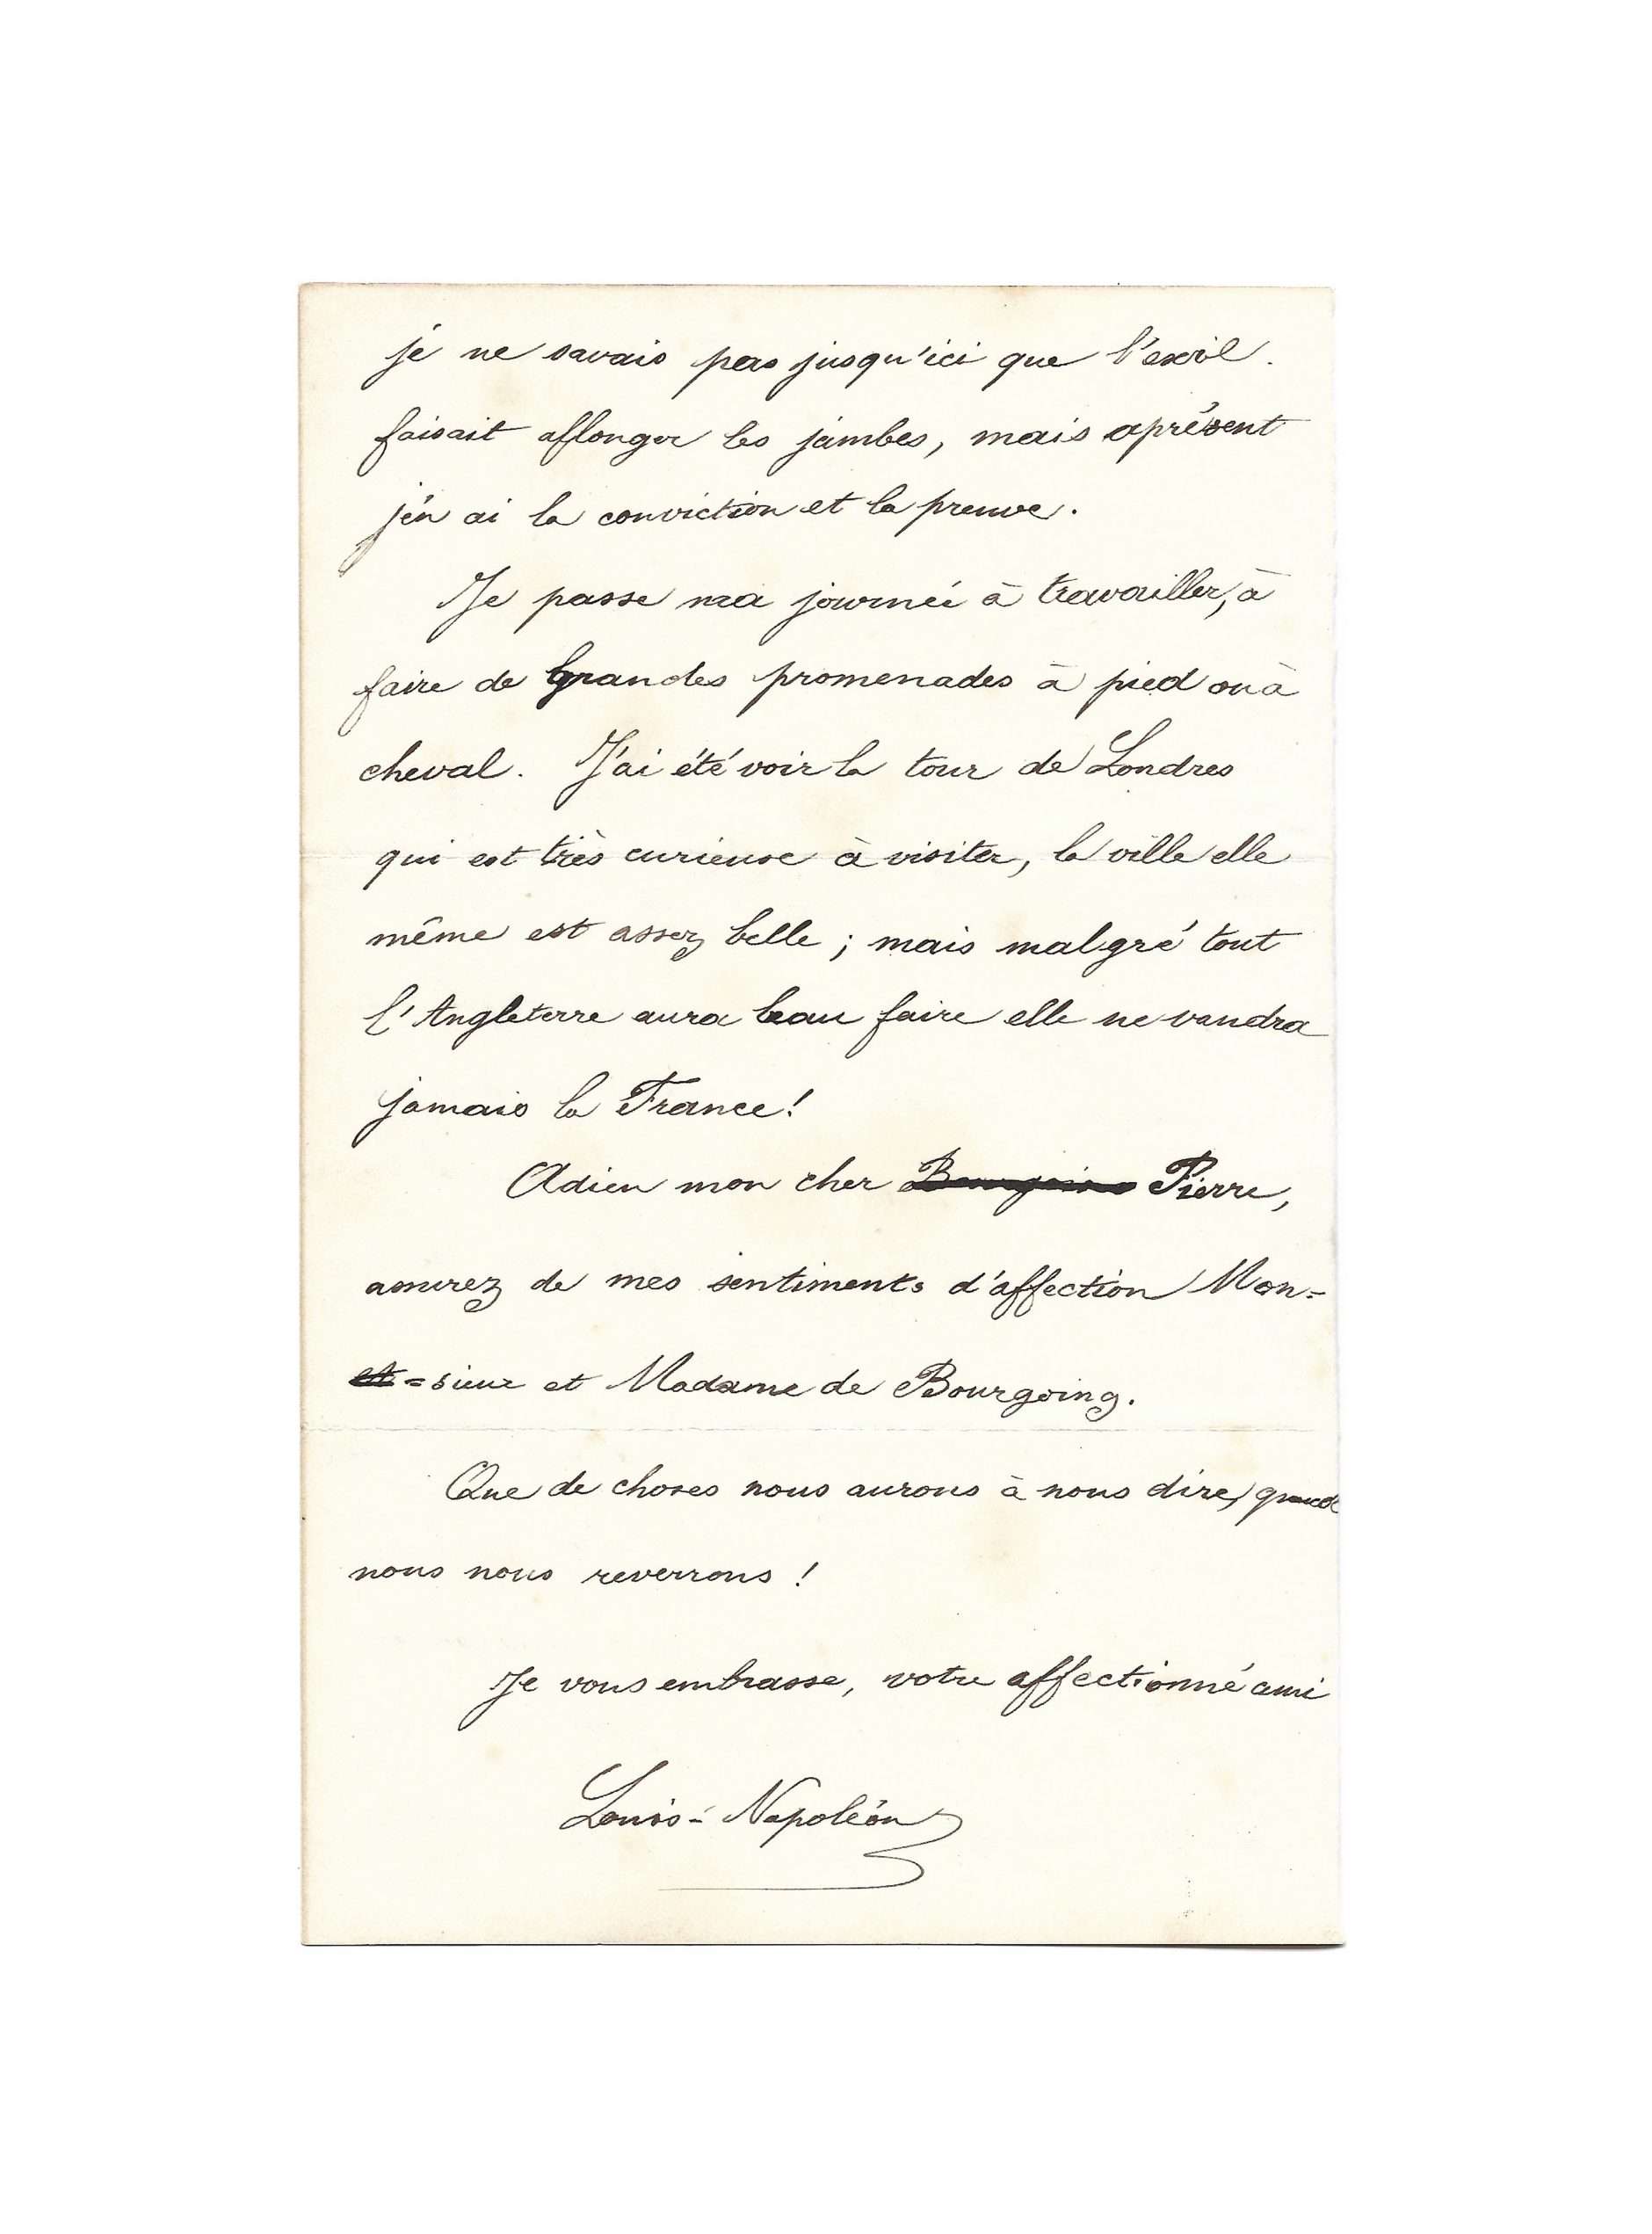 je ne savais pas jusqu'ici que l'exil
faisait allonger les jambes, mais aprésent
j'en ai la conviction et la preuve.
Je passe ma journée à travailler, à
faire de grandes promenades à pied ou à
cheval. J'ai été voir la tour de Londres
qui est très curieuse à visiter, la ville elle
même est assez belle ; mais malgré tout
l'Angleterre aura beau faire elle ne vaudra
jamais la France !
Adieu mon cher Pierre,
assurez de mes sentiments d'affection Mon=
=sieur et Madame de Bourgoing.
Que de choses nous aurons à nous dire, quand
nous nous reverrons !
Je vous embrasse, votre affectionné ami
Louis-Napoléon